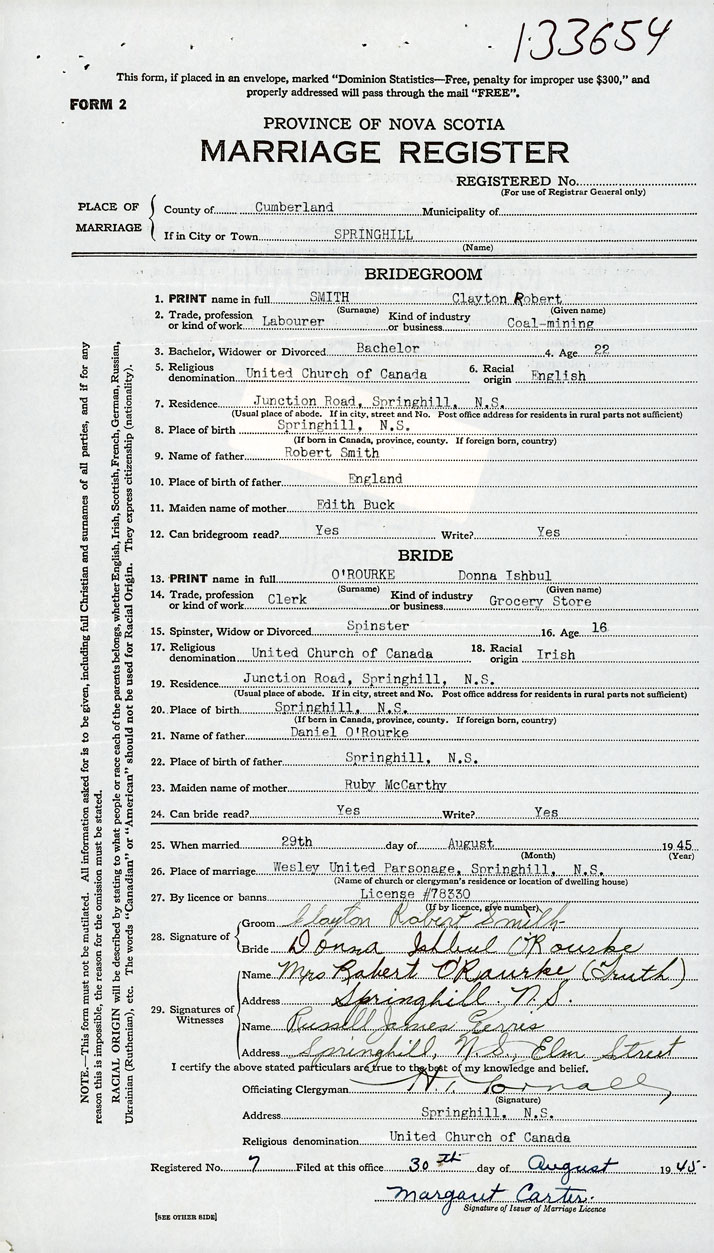 133654
This form, if placed in an envelope, marked "Dominion Statistics—Free, penalty for improper use $300," and
properly addressed will pass through the mail "FREE".
FORM 2
PROVINCE OF NOVA SCOTIA
MARRIAGE REGISTER
REGISTERED No.
(For use of Registrar General only)
PLACE OF MARRIAGE
County of Cumberland Municipality of
If in City or Town SPRINGHILL
(Name)
BRIDEGROOM
1. PRINT name in full SMITH Clayton Robert
(Surname) (Given name)
2. Trade, profession or kind of work Labourer Kind of industry or business Coal-mining
3. Bachelor, Widower or Divorced Bachelor 4. Age 22
5. Religious denomination United Church of Canada 6. Racial origin English
7. Residence Junction Road, Springhill, N.S.
(Usual place of abode. If in city, street and No. Post office address for residents in rural parts not sufficient)
8. Place of birth Springhill, N.S.
(If born in Canada, province, county. If foreign born, country)
9. Name of father Robert Smith
10. Place of birth of father England
11. Maiden name of mother Edith Buck
12. Can bridegroom read? Yes Write? Yes
BRIDE
13. PRINT name in full O'ROURKE Donna Ishbul
(Surname) (Given name)
14. Trade, profession or kind of work Clerk Kind of industry or business Grocery Store
15. Spinster, Widow or Divorced Spinster 16. Age 16
17. Religious denomination United Church of Canada 18. Racial origin Irish
19. Residence Junction Road, Springhill, N.S.
(Usual place of abode. If in city, street and No. Post office address for residents in rural parts not sufficient)
20. Place of birth Springhill, N.S.
(If born in Canada, province, county. If foreign born, country)
21. Name of father Daniel O'Rourke
22. Place of birth of father Springhill, N.S.
23. Maiden name of mother Ruby McCarthy
24. Can bride read? Yes Write? Yes
25. When married 29th day of August 1945
(Month) (Year)
26. Place of marriage Wesley United Parsonage, Springhill, N.S.
(Name of church or clergyman's residence or location of dwelling house)
27. By licence or banns License #78330
(If by licence, give number)
28. Signature of
Groom Clayton Robert Smith
Bride Donna Ishbul O'Rourke
29. Signatures of Witnesses
Name Mrs Robert O'Rourke (Truth)
Address Springhill. N.S.
Name Russell James
Address Springhill, N.S., Elm Street
I certify the above stated particulars are true to the best of my knowledge and belief.
Officiating Clergyman
(Signature)
Address Springhill, N.S.
Religious denomination United Church of Canada
Registered No. 7 Filed at this office 30th day of August 1945
Margaret Carter.
Signature of Issuer of Marriage Licence
[SEE OTHER SIDE]
NOTE.—This form must not be mutilated. All information asked for is to be given, including full Christian and surnames of all parties, and if for any
reason this is impossible, the reason for the omission must be stated.
RACIAL ORIGIN will be described by stating to what people or race each of the parents belongs, whether English, Irish, Scottish, French, German, Russian,
Ukrainian (Ruthenian), etc. The words "Canadian" or "American" should not be used for Racial Origin. They express citizenship (nationality).